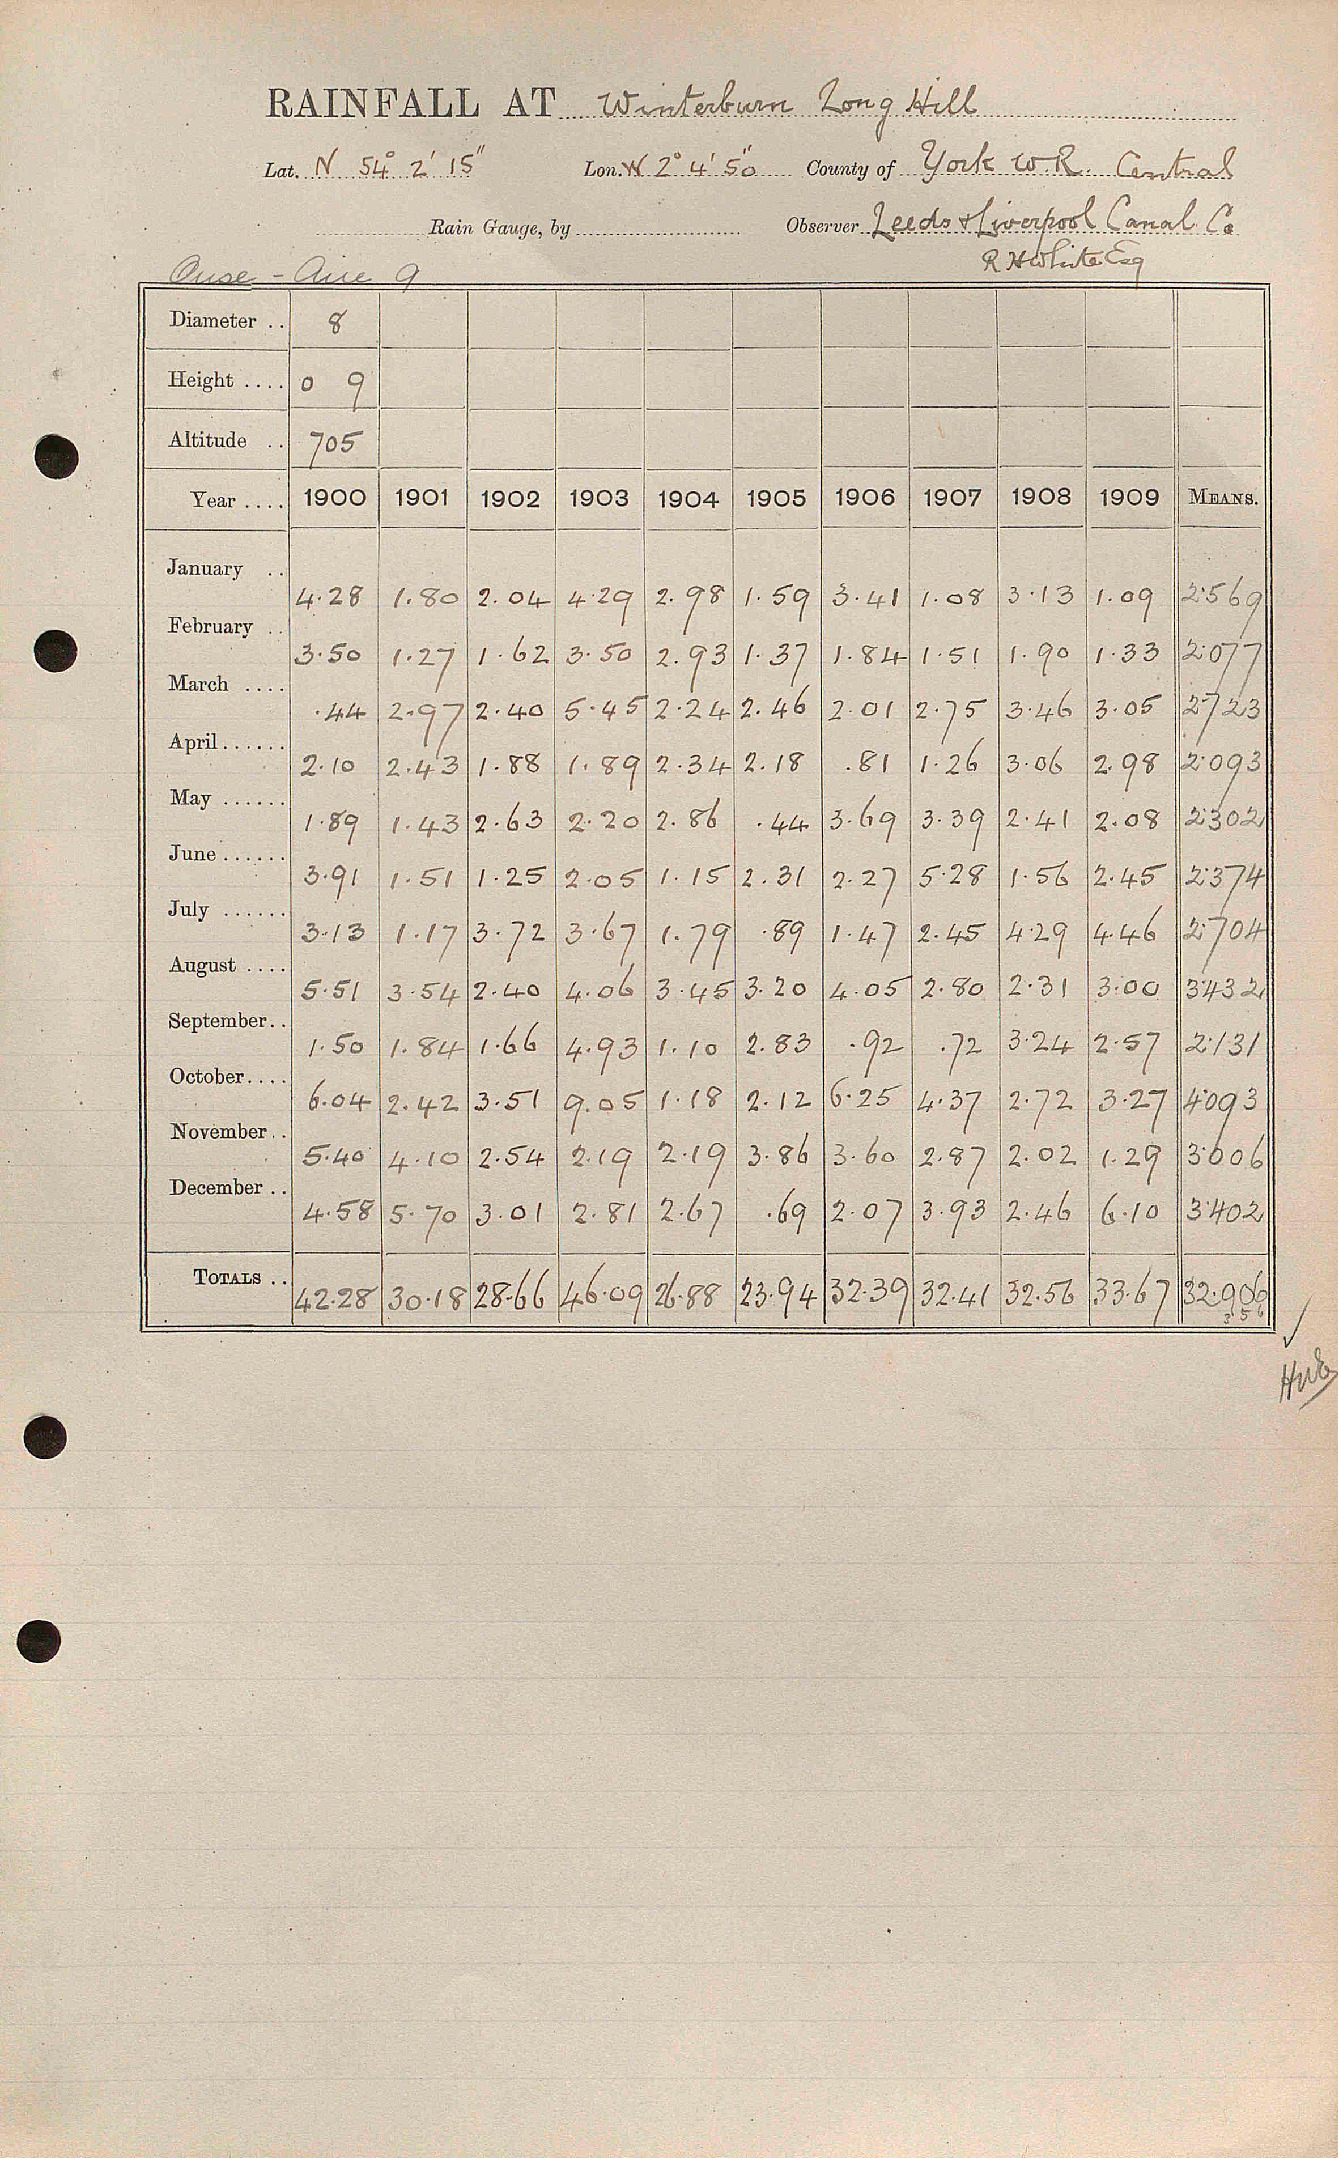 RAINFALL AT Winterburn Long Hill
Lat. N 54° 2' 15" Lon. W 2° 4' 50" County of York W.R. Central
Rain Gauge, by Observer Leeds & Liverpool Canal Co
R H White Esq
Ouse - Aire 9
Diameter .. 8
Height .... 0 9
Altitude .. 705
Year .... 1900 1901 1902 1903 1904 1905 1906 1907 1908 1909 MEANS.
January .. 4.28 1.80 2.04 4.29 2.98 1.59 3.41 1.08 3.13 1.09 2.569
February .. 3.50 1.27 1.62 3.50 2.93 1.37 1.84 1.51 1.90 1.33 2.077
March .... .44 2.97 2.40 5.45 2.24 2.46 2.01 2.75 3.46 3.05 2.723
April...... 2.10 2.43 1.88 1.89 2.34 2.18 .81 1.26 3.06 2.98 2.093
May ...... 1.89 1.43 2.63 2.20 2.86 .44 3.69 3.39 2.41 2.08 2.302
June ...... 3.91 1.51 1.25 2.05 1.15 2.31 2.27 5.28 1.56 2.45 2.374
July ...... 3.13 1.17 3.72 3.67 1.79 .89 1.47 2.45 4.29 4.46 2.704
August .... 5.51 3.54 2.40 4.06 3.45 3.20 4.05 2.80 2.31 3.00 3.432
September.. 1.50 1.84 1.66 4.93 1.10 2.83 .92 .72 3.24 2.57 2.131
October.... 6.04 2.42 3.51 9.05 1.18 2.12 6.25 4.37 2.72 3.27 4.093
November.. 5.40 4.10 2.54 2.19 2.19 3.86 3.60 2.87 2.02 1.29 3.006
December .. 4.58 5.70 3.01 2.81 2.67 .69 2.07 3.93 2.46 6.10 3.402
TOTALS .. 42.28 30.18 28.66 46.09 26.88 23.94 32.39 32.41 32.56 33.67 32.906